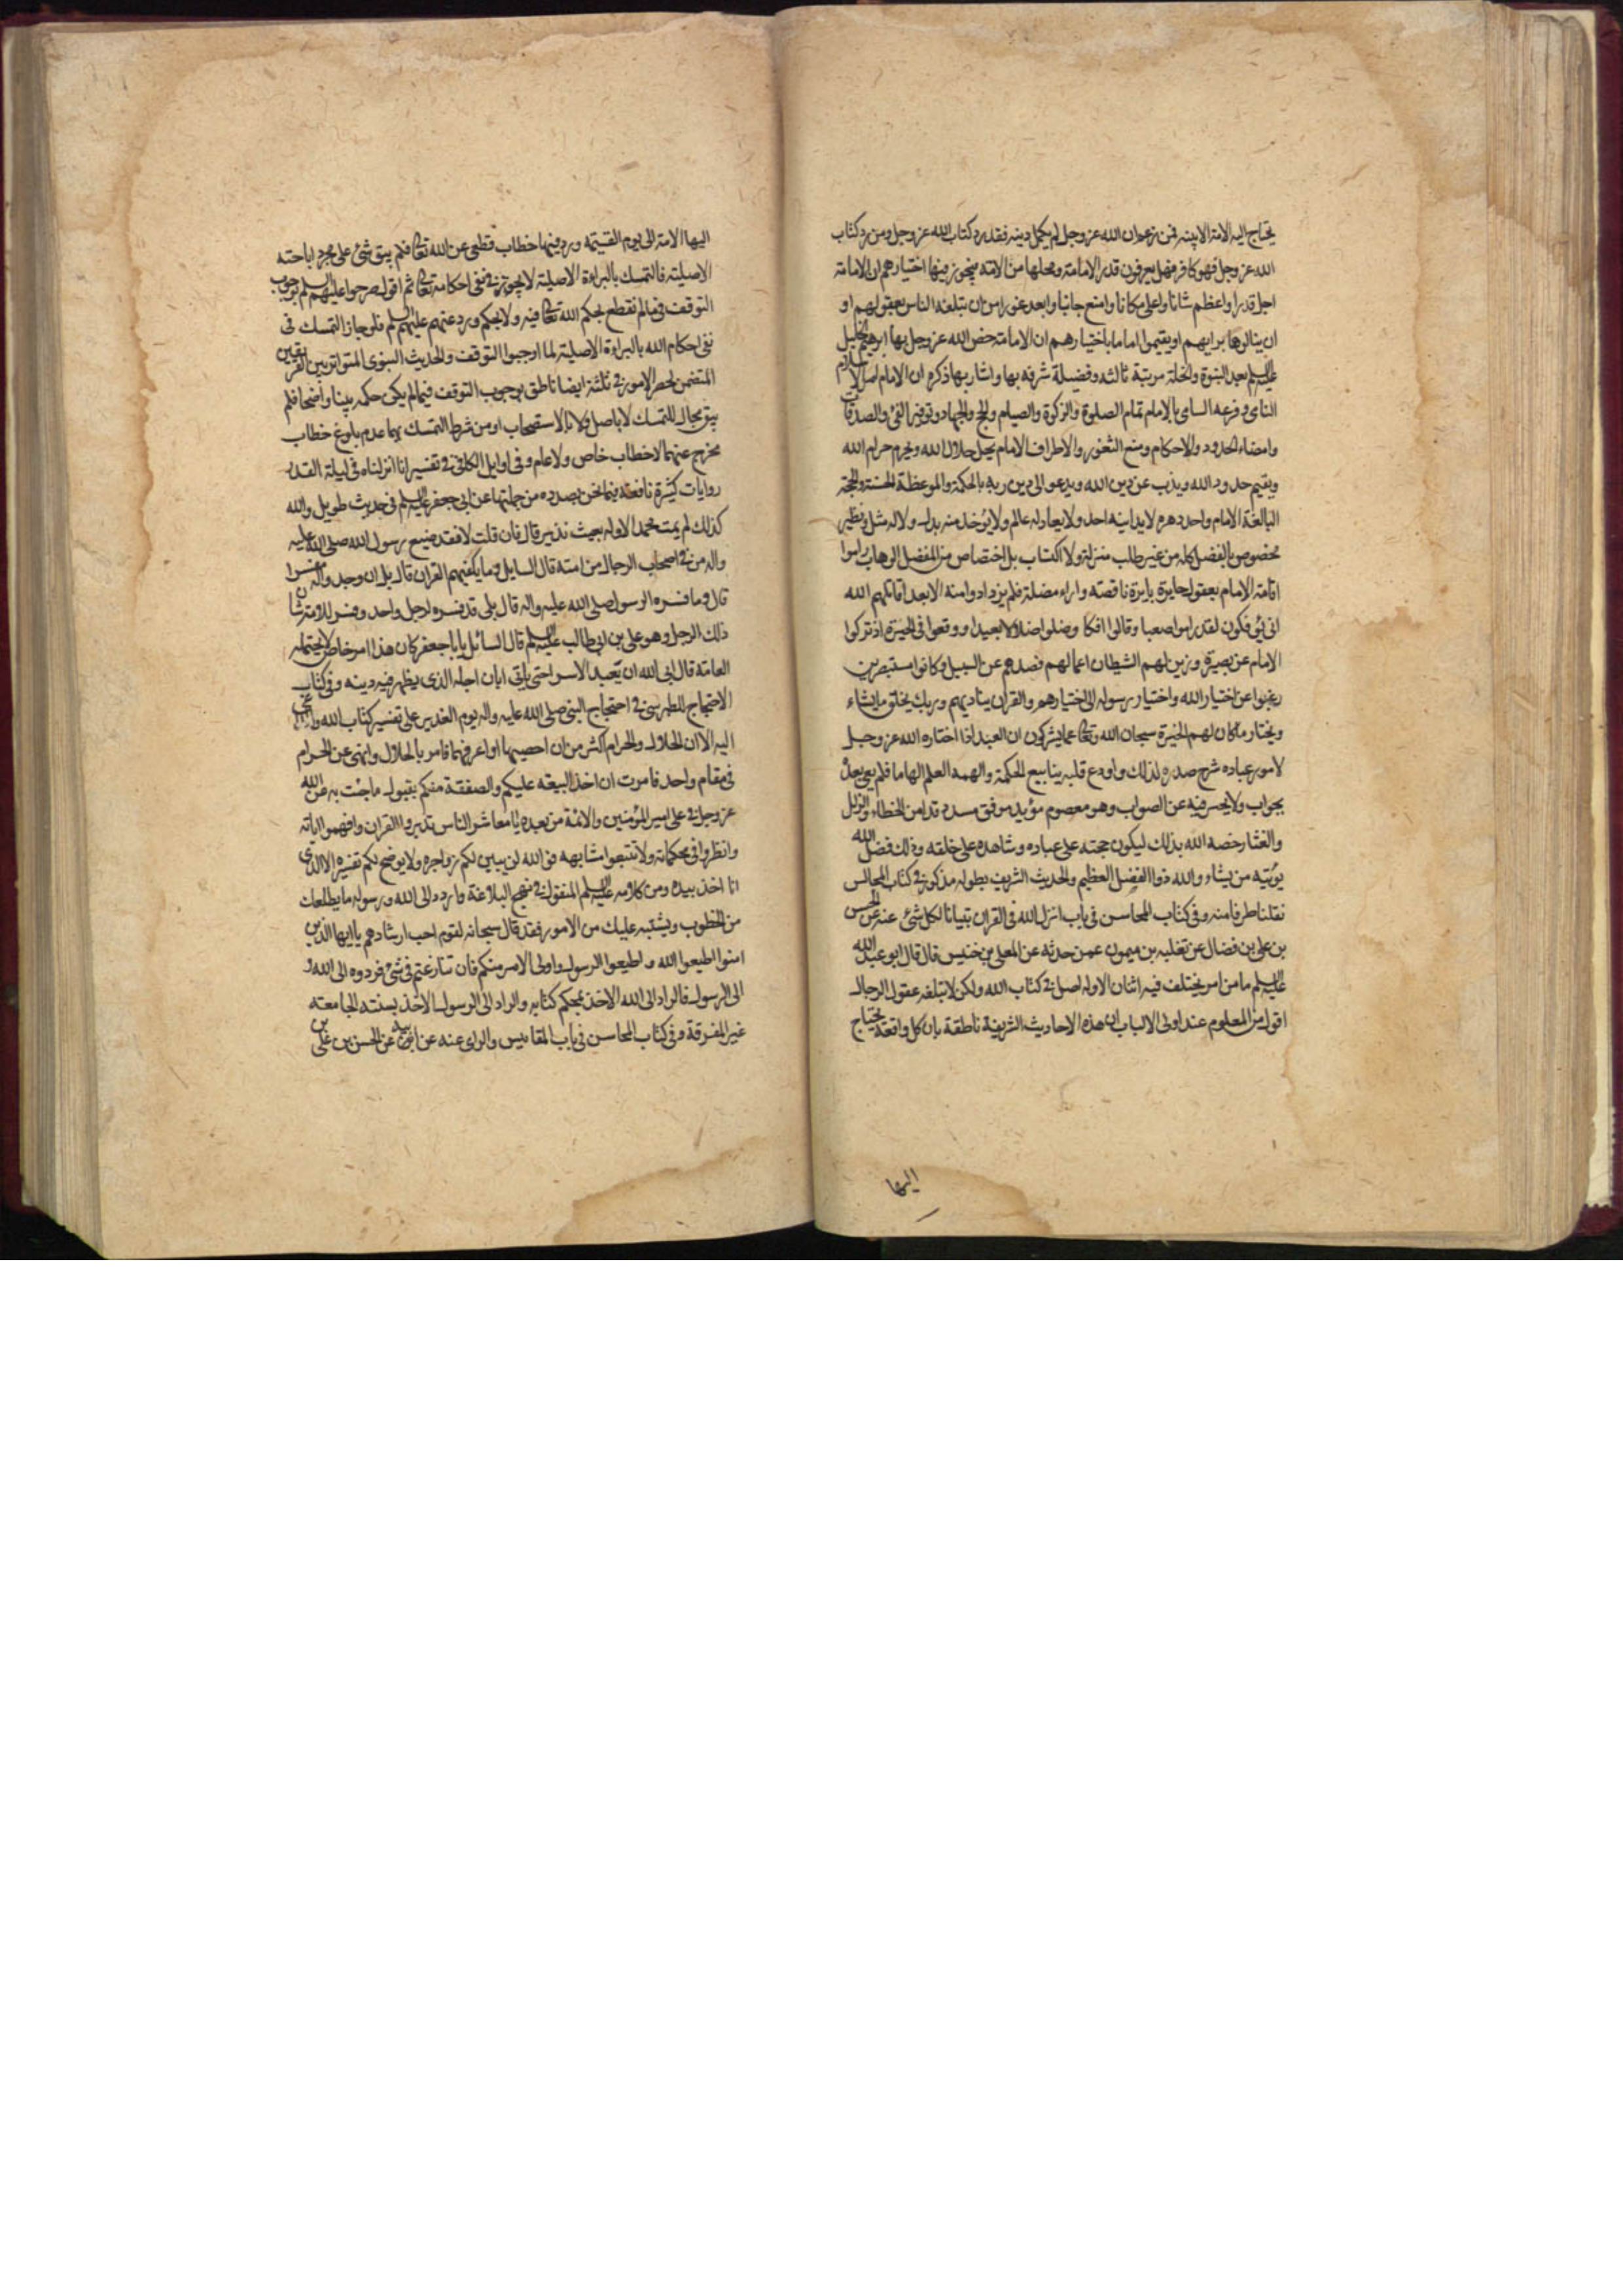 يحتاج اليه الامة الا بينه فمن زعم ان الله عز وجل لم يكمل دينه فقد رد كتاب الله عز وجل ومن رد كتاب
الله عز وجل فهو كافر فهل يعرفون قدر الامامة ومحلها من الامة فيجوز فيها اختيارهم ان الامامة
اجل قدرا واعظم شانا واعلى مكانا وامنع جانبا وابعد غورا من ان يبلغه الناس بعقولهم او
ان ينالوها برايهم او يقيموا اماما باختيارهم ان الامامة خص الله عز وجل بها ابرهيم الخليل
عليه السلم بعد النبوة والخلة مرتبة ثالثه وفضيلة شرفه بها واشار بها ذكره ان الامام اصل الاسلام
النامي وفرعه السامي بالامام تمام الصلوة والزكوة والصيام والحج والجهاد وتوفير الفئ والصدقات
وامضاء الحدود والاحكام ومنع الثغور والاطراف الامام يحل حلال الله ويحرم حرام الله
ويقيم حدود الله ويذب عن دين الله ويدعو الى دين ربه بالحكمة والموعظة الحسنة والحجة
البالغة الامام واحد دهره لا يدانيه احد ولا يعادله عالم ولا يؤخذ منه بدل ولا له مثل ونظير
مخصوص بالفضل كله من غير طلب منزلة ولا اكتساب بل اختصاص من المفضل الوهاب راموا
اقامة الامام بعقول حايرة بايرة ناقصة واراء مضلة فلم يزدادوا منه الا بعدا قاتلهم الله
انى يؤفكون لقد راموا صعبا وقالوا افكا وضلوا ضلالا بعيدا ووقعوا فى الحيرة اذ تركوا
الامام عن بصيرة وزين لهم الشيطان اعمالهم فصدهم عن السبيل وكانوا مستبصرين
رغبوا عن اختيار الله واختيار رسوله الى اختيارهم والقران يناديهم وربك يخلق ما يشاء
ويختار ما كان لهم الخيرة سبحان الله وتعالى عما يشركون ان العبد اذا اختاره الله عز وجل
لامور عباده شرح صدره لذلك واودع قلبه ينابيع الحكمة والهمه العلم الهاما فلم يعي بعده
بجواب ولا يحير فيه عن الصواب وهو معصوم مؤيد موفق مسدد قد امن الخطاء والزلل
والعثار خصه الله بذلك ليكون حجته على عباده وشاهده على خلقه وذلك فضل الله
يؤتيه من يشاء والله ذو الفضل العظيم والحديث الشريف بطوله مذكور فى كتاب المجالس
نقلنا طرفا منه وفى كتاب المحاسن فى باب انزل الله فى القران تبيانا لكل شئ عنه عن الحسن
بن على بن فضال عن ثعلبه بن ميمون عمن حدثه عن المعلى بن خنيس قال قال ابو عبد الله
عليه السلم ما من امر يختلف فيه اثنان الا وله اصل فى كتاب الله ولكن لا تبلغه عقول الرجال
اقول من المعلوم عند اولى الالباب ان هذه الاحاديث الشريفة ناطقة بان كل واقعة يحتاج
اليها
اليها الامة الى يوم القيمة ورد فيها خطاب قطعى عن الله تعالى فلم يبق شئ على مجرد اباحته
الاصلية فالتمسك بالبراءة الاصلية لا يجوز فى نفى احكامه تعالى ثم اقول صرحوا عليهم السلم بوجوب
التوقف فى ما لم نقطع بحكم الله تعالى فيه ولا بحكم ورد عنهم عليهم السلم فلو جاز التمسك فى
نفى احكام الله بالبراءة الاصلية لما اوجبوا التوقف والحديث النبوى المتواتر بين الفريقين
المتضمن لحصر الامور فى ثلثة ايضا ناطق بوجوب التوقف فيما لم يكن حكمه بينا واضحا فلم
يبق مجال للتمسك لا باصل ولا بالاستصحاب اذ من شرط التمسك بهما عدم بلوغ خطاب
مخرج عنهما لا خطاب خاص ولا عام وفى اوايل الكافى فى تفسير انا انزلناه فى ليلة القدر
روايات كثيرة نافعه فيما نحن بصدده من جملتها عن ابى جعفر عليه السلم فى حديث طويل والله
كذلك لم يمت محمد الا وله بعيث نذير قال فان قلت لا فقد ضيع رسول الله صلى الله عليه
واله من فى اصحاب الرجال من امته قال السايل وما يكفيهم القران قال بلى ان وجدوا له مفسرا
قال وما فسره الرسول صلى الله عليه واله قال بلى قد فسره لرجل واحد وفسر للامة شان
ذلك الرجل وهو على بن ابى طالب عليه السلم قال السائل يا با جعفر كان هذا امر خاص لا يحتمله
العامة قال ابى الله ان يعبد الا سرا حتى ياتى ابان اجله الذى يظهر فيه دينه وفى كتاب
الاحتجاج للطبرسى فى احتجاج النبى صلى الله عليه واله يوم الغدير على تفسير كتاب الله والداعى
اليه الا ان الحلال والحرام اكثر من ان احصيهما او اعرفهما فامر بالحلال وانهى عن الحرام
فى مقام واحد فامرت ان اخذ البيعة عليكم والصفقة منكم بقبول ما جئت به عن الله
عز وجل فى على امير المؤمنين والائمة من بعده يا معاشر الناس تدبروا القران وافهموا اياته
وانظروا فى محكماته ولا تتبعوا متشابهه فوالله لن يبين لكم زواجره ولا يوضح لكم تفسيره الا الذى
انا اخذ بيده ومن كلامه عليه السلم المنقول فى نهج البلاغة واردد الى الله ورسوله ما يظلعك
من الخطوب ويشتبه عليك من الامور فقد قال سبحانه لقوم احب ارشادهم يا ايها الذين
امنوا اطيعوا الله واطيعوا الرسول واولى الامر منكم فان تنازعتم فى شئ فردوه الى الله و
الى الرسول فالراد الى الله الاخذ بمحكم كتابه والراد الى الرسول الاخذ بسنته الجامعة
غير المفرقة وفى كتاب المحاسن فى باب المقائيس والراى عنه عن ابيه عن الحسن بن على بن